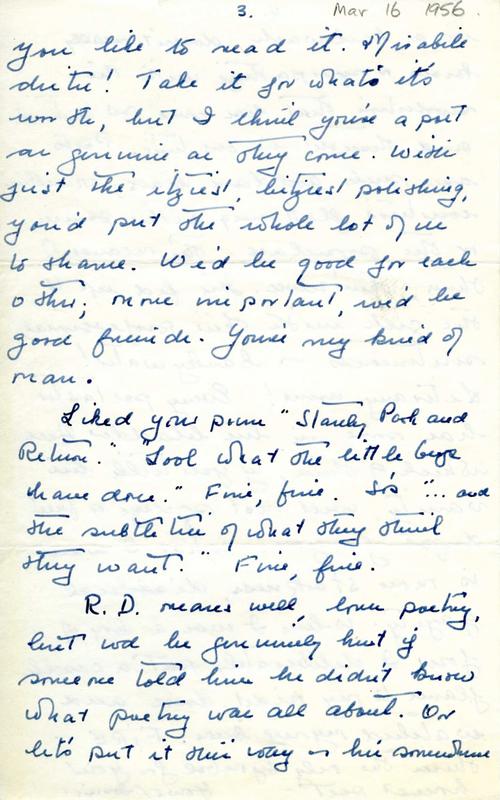 3.
Mar 16 1956.
you like to read it. Mirabile
dictu! Take it for what it's
worth, but I think you're a poet
as genuine as they come. With
just the itziest, bitziest polishing,
you'd put the whole lot of us
to shame. We'd be good for each
other; more important, we'd be
good friends. You're my kind of
man.
Liked your poem "Stanley Park and
Return." "Look what the little boys
have done." Fine, fine. So's "... and
the subtle lie of what they think
they want." Fine, fine.
R. D. means well, loves poetry,
but wd be genuinely hurt if
someone told him he didn't know
what poetry was all about. Or
let's put it this way – he somehow